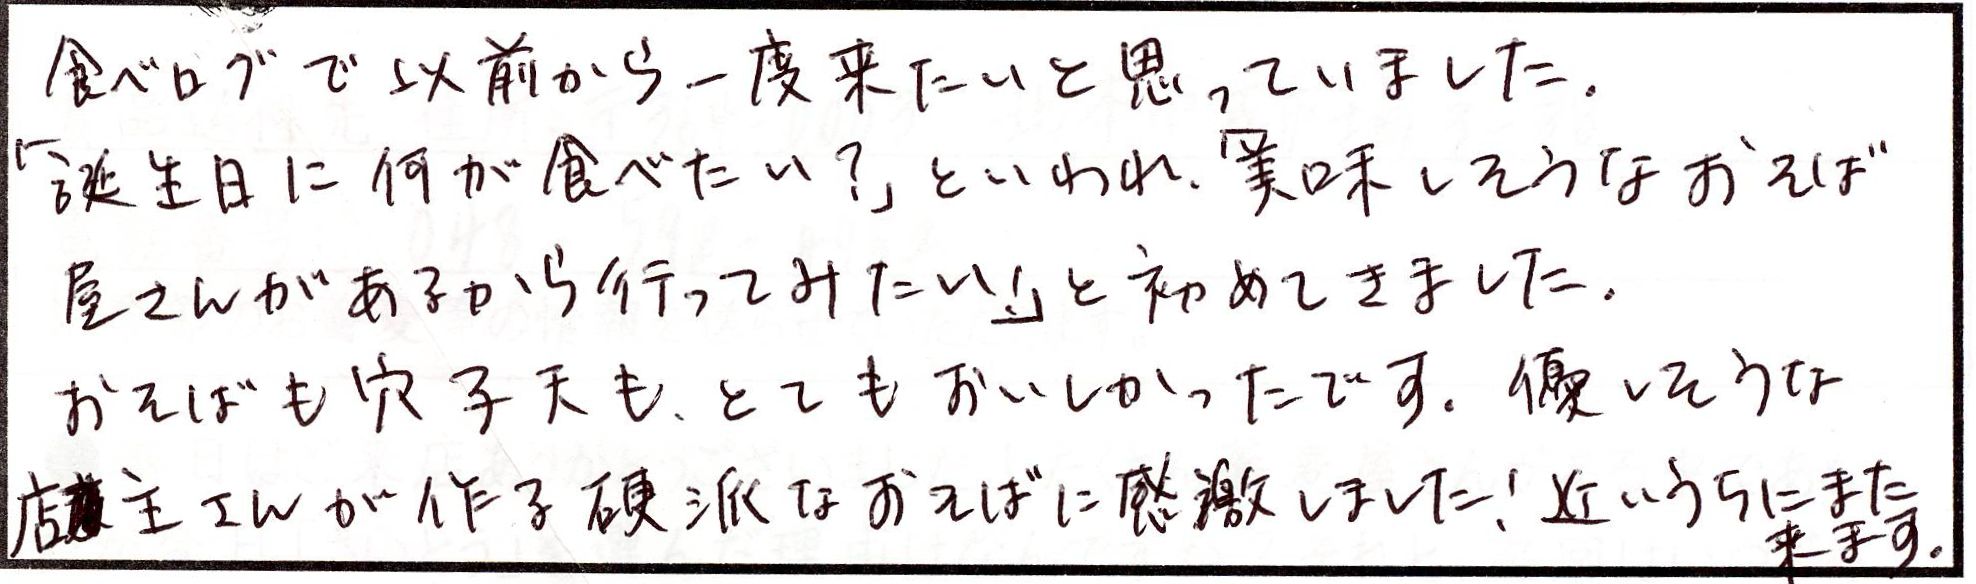 食べログで以前から一度来たいと思っていました。
「誕生日に何が食べたい?」といわれ、「美味しそうなおそば
屋さんがあるから行ってみたい!」と初めてきました。
おそばも穴子天も、とてもおいしかったです。優しそうな
店主さんが作る硬派なおそばに感激しました!近いうちにまた
来ます。